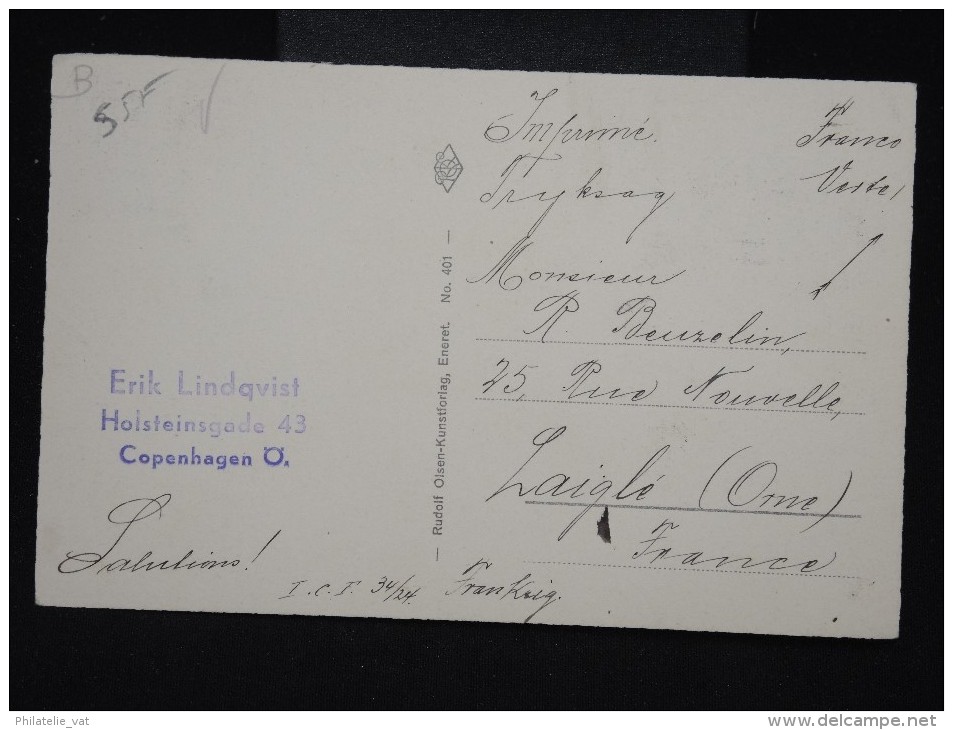 B
55F
Imprimé.
Tryksag
Franco
Verte,
Monsieur
R. Beuzelin,
25, Rue Nouvelle,
Laiglé (Orne)
France
— Rudolf Olsen-Kunstforlag, Eneret. No. 401 —
Erik Lindqvist
Holsteinsgade 43
Copenhagen Ö.
Salutions!
I.C.F. 34/24.
Philatelie_vat
www.delcampe.net